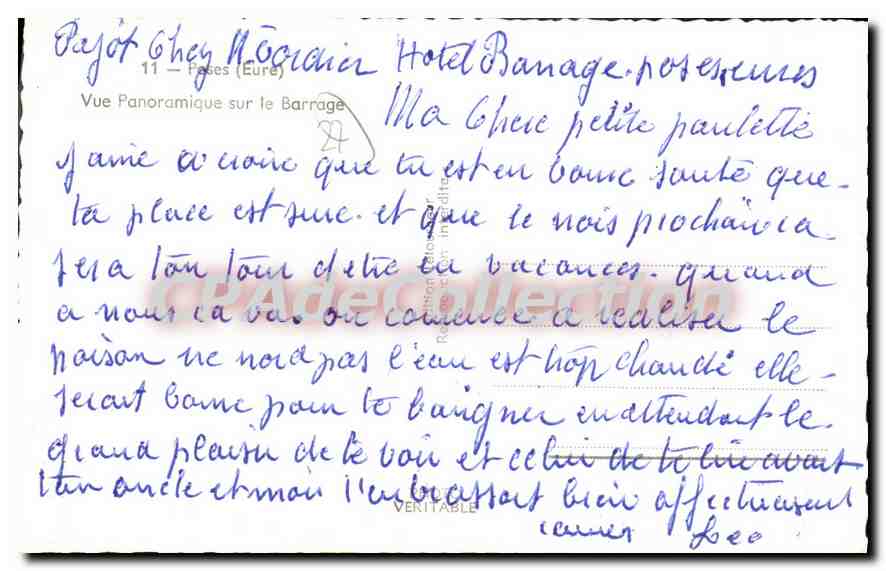 Pajot Chez M. Cordier Hotel Barrage. poses. eures
11 — Poses (Eure)
Vue Panoramique sur le Barrage
27
Ma Chere petite paulette
J'aime a croire que tu est en bonne santé que
ta place est sure. et que le mois prochain ca
sera ton tour d'etre en vacances. quand
a nous ca va. on comence a realiser le
poison ne mord pas l'eau est trop chaude elle
serait bonne pour te baigner en attendant le
grand plaisir de te voir et celui de te lire avant
ton oncle et moi t'enbrassont bien affectueusement
Leo
Reproduction interdite
VERITABLE
CPAdeCollection